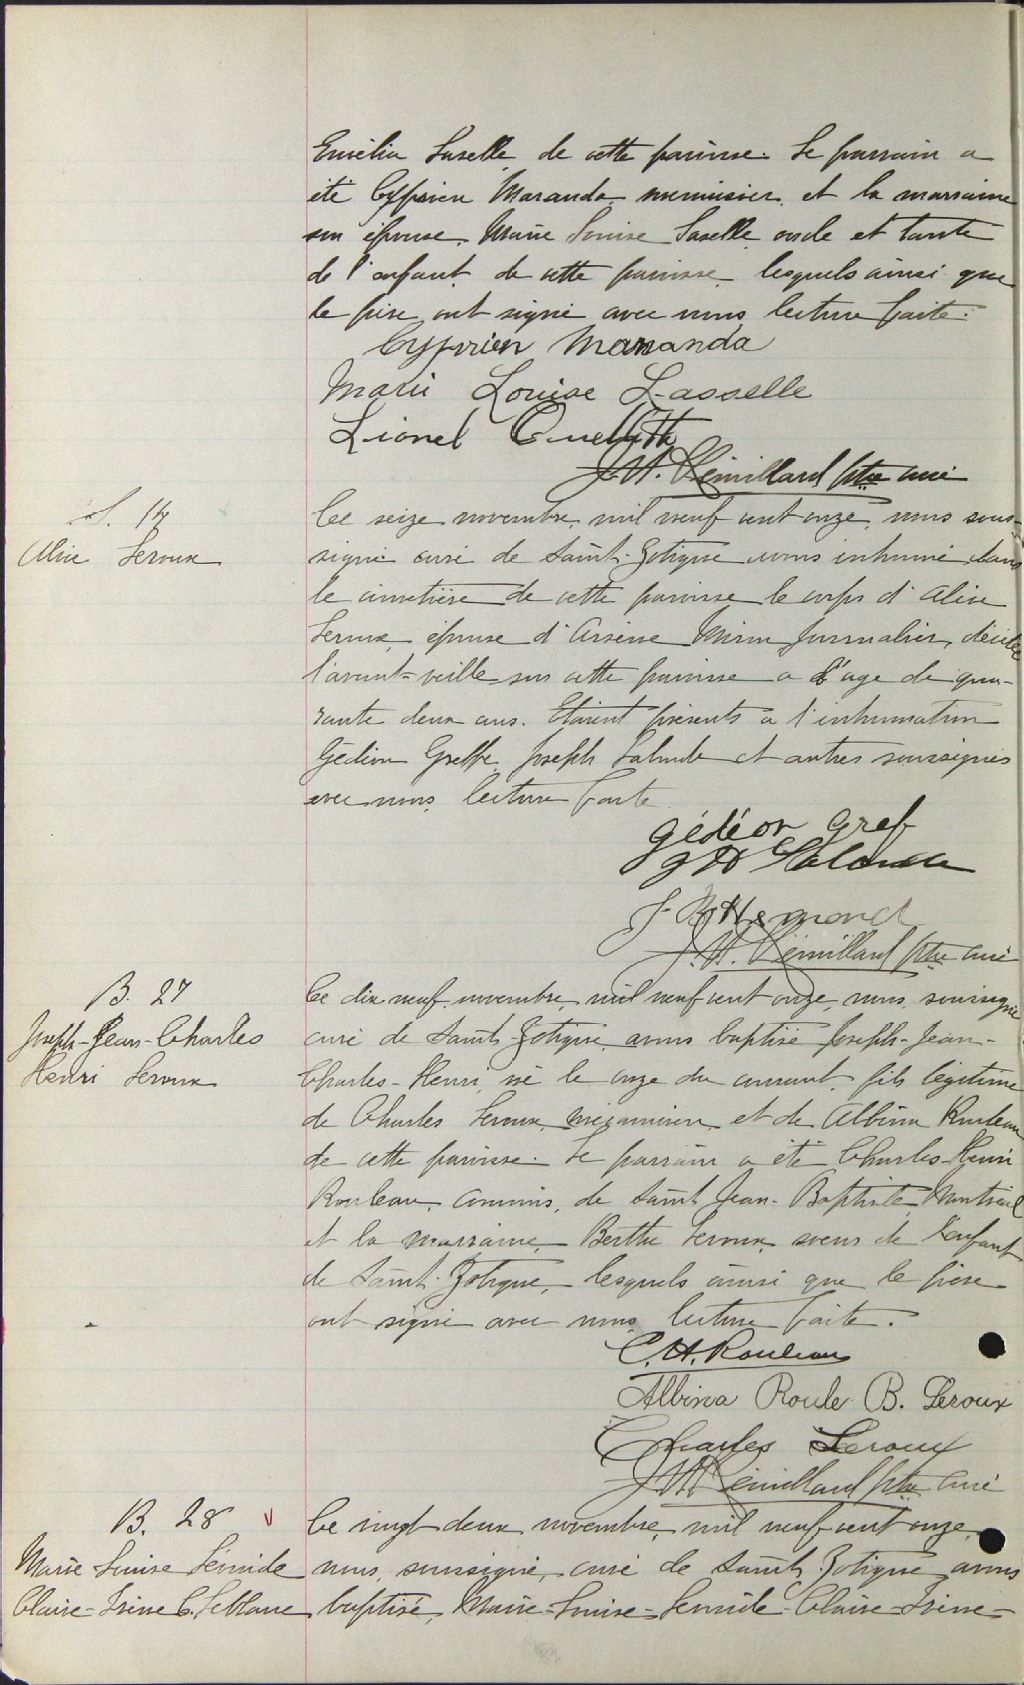 Emélia Laselle, de cette paroisse. Le parrain a
été Cyprien Maranda menuisier, et la marraine
son épouse, Marie Louise Laselle oncle et tante
de l'enfant, de cette paroisse, lesquels ainsi que
le père ont signé avec nous lecture faite.
Cyprien Maranda
Marie Louise Lasselle
Lionel Ouellette
J. A. Rémillard ptre curé
S. 14
Alice Leroux
Ce seize novembre, mil neuf cent onze, nous sous-
signé curé de Saint-Zotique avons inhumé dans
le cimetière de cette paroisse le corps d'Alice
Leroux, épouse d'Arsène journalier, décédée
l'avant-veille sur cette paroisse a l'age de qua-
rante deux ans. Etaient présents a l'inhumation
Gédéon Greffe, Joseph Lalonde et autres soussignés
avec nous, lecture faite
Gédéon Gref
Lalonde
Hemond
J. A. Rémillard ptre curé
B. 27
Joseph-Jean-Charles
Henri Leroux
Ce dix neuf, novembre, mil neuf cent onze, nous, soussigné
curé de Saint-Zotique, avons baptisé Joseph-Jean-
Charles-Henri, né le onze du courant, fils légitime
de Charles Leroux, mécanicien, et de Albina Rouleau
de cette paroisse. Le parrain a été Charles-Henri
Rouleau, commis, de Saint Jean-Baptiste, Montréal
et la marraine, Berthe Leroux, soeur de l'enfant
de Saint-Zotique, lesquels ainsi que le père
ont signé avec nous, lecture faite.
C. H. Rouleau
Albina Roule B. Leroux
Charles Leroux
J. A. Rémillard ptre curé
B. 28 v
Marie Louise Lémide
Claire-Irène C. Leblanc
Ce vingt deux novembre, mil neuf cent onze
nous, soussigné, curé de Saint-Zotique avons
baptisé, Marie-Louise-Lémide-Claire-Irène-